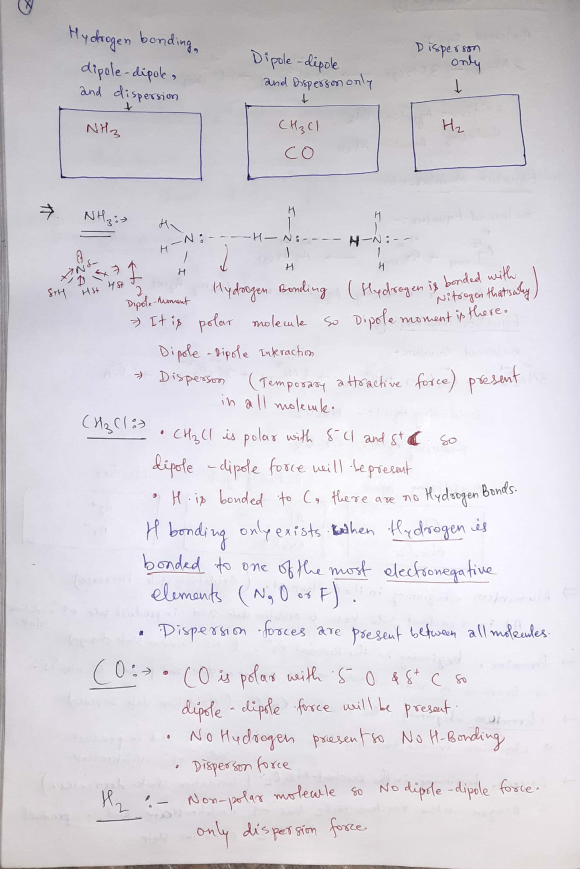 Hydrogen bonding,
dipole-dipole,
and dispersion
Dipole-dipole
and Disperson only
Disperson
only
NH3
CH3Cl
CO
H2
⇒ NH3:→
H H H
H-N: ----- H-N: ----- H-N: --
H H H
δ- N
δ+H H δ+ H δ+
Dipole-Moment
Hydrogen Bonding (Hydrogen is bonded with
Nitrogen that's why)
⇒ It is polar molecule so Dipole moment is there.
Dipole-dipole Interaction
→ Disperson (Temporary attractive force) present
in all molecule.
CH3Cl:→ • CH3Cl is polar with δ- Cl and δ+ C so
dipole-dipole force will be present
• H is bonded to C, there are no Hydrogen Bonds.
H bonding only exists when Hydrogen is
bonded to one of the most electronegative
elements (N, O or F).
• Dispersion forces are present between all molecules.
CO:→ • CO is polar with δ- O & δ+ C so
dipole-dipole force will be present.
• No Hydrogen present so No H-Bonding
• Disperson force
H2 :- Non-polar molecule so No dipole-dipole force.
only dispersion force